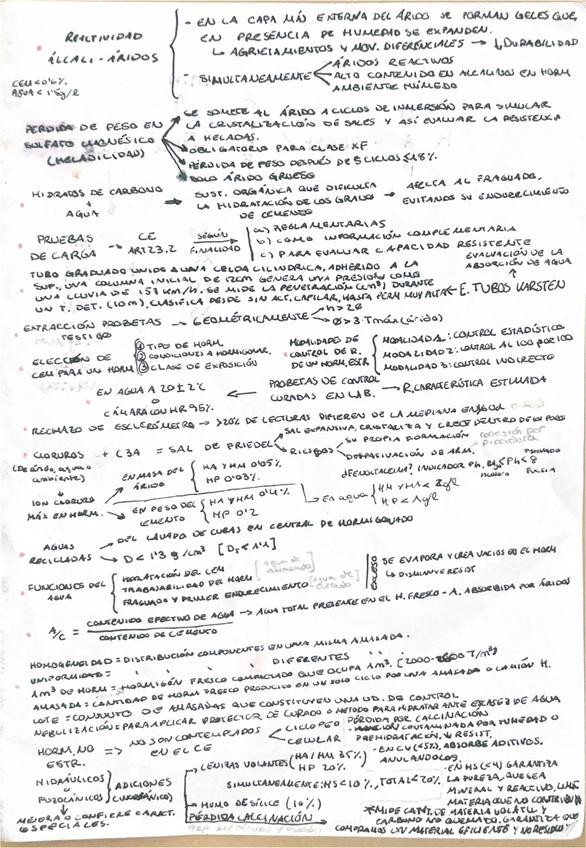 REACTIVIDAD ÁLCALI-ÁRIDOS
CEM<0'6%
AGUA<1'5g/l
- EN LA CAPA MÁS EXTERNA DEL ÁRIDO SE FORMAN GELES QUE,
EN PRESENCIA DE HUMEDAD SE EXPANDEN.
↳ AGRIETAMIENTOS Y MOV. DIFERENCIALES → ↓DURABILIDAD
- SIMULTANEAMENTE
ÁRIDOS REACTIVOS
ALTO CONTENIDO EN ALCALINOS EN HORM
AMBIENTE HÚMEDO
PÉRDIDA DE PESO EN
SULFATO MAGNÉSICO
(HELADICIDAD)
SE SOMETE AL ÁRIDO A CICLOS DE INMERSIÓN PARA SIMULAR
LA CRISTALIZACIÓN DE SALES Y ASÍ EVALUAR LA RESISTENCIA
A HELADAS.
OBLIGATORIO PARA CLASE XF
PÉRDIDA DE PESO DESPUÉS DE 5 CICLOS ≤18%.
SOLO ÁRIDO GRUESO
HIDRATOS DE CARBONO
+
AGUA
→ SUST. ORGÁNICA QUE DIFICULTA
LA HIDRATACIÓN DE LOS GRANOS
DE CEMENTO
→ AFECTA AL FRAGUADO,
EVITANDO SU ENDURECIMIENTO
PRUEBAS
DE CARGA
→ CE
ART 23.2
SEGÚN
FINALIDAD
a) REGLAMENTARIAS
b) COMO INFORMACIÓN COMPLEMENTARIA
c) PARA EVALUAR CAPACIDAD RESISTENTE
TUBO GRADUADO UNIDO A UNA CELDA CILÍNDRICA, ADHERIDO A LA
SUP., UNA COLUMNA INICIAL DE 12CM GENERA UNA PRESIÓN COMO
UNA LLUVIA DE 153 KM/H. SE MIDE LA PENETRACIÓN (CM³) DURANTE
UN T. DET. (10m), CLASIFICA DESDE SIN ACT. CAPILAR, HASTA PERM MUY ALTA ← E. TUBOS KARSTEN
EVALUACIÓN DE LA
ABSORCIÓN DE AGUA
EXTRACCIÓN PROBETAS
TESTIGO
→ GEOMÉTRICAMENTE
Ø>3·Tmáx(árido)
ELECCIÓN DE
CEM PARA UN HORM
① TIPO DE HORM.
② CONDICIONES A HORMIGONAR.
③ CLASE DE EXPOSICIÓN
MODALIDADES DE
CONTROL DE R.
DE UN HORM. ESTR.
MODALIDAD 1: CONTROL ESTADÍSTICO
MODALIDAD 2: CONTROL AL 100 POR 100
MODALIDAD 3: CONTROL INDIRECTO
EN AGUA A 20±2°C
O
CÁMARA CON HR 95%.
← PROBETAS DE CONTROL
CURADAS EN LAB.
→ R. CARACTERÍSTICA ESTIMADA
RECHAZO DE ESCLERÓMETRO → >20% DE LECTURAS DIFIEREN DE LA MEDIANA EN 6ud.
CLORUROS + C3A = SAL DE FRIEDEL
(De árido, agua o
ambiente)
SAL EXPANSIVA, CRISTALIZA Y CRECE DENTRO DE LOS POROS
RIESGOS
SU PROPIA FORMACIÓN
DESPASIVACIÓN DE ARM.
corrosión por
picadura
ION CLORURO
MÁX EN HORM.
EN MASA DEL
ÁRIDO
HA Y HM 0'05%
HP 0'03%
EN PESO DEL
CEMENTO
HA Y HM 0'4%
HP 0'2
En agua
HP < 1g/l
AGUAS
RECICLADAS
DEL LAVADO DE CUBAS EN CENTRAL DE HORMIGONADO
D<1'3 g/cm³ [DT<1'1]
FUNCIONES DEL
AGUA
HIDRATACIÓN DEL CEM
TRABAJABILIDAD DEL HORM
FRAGUADO Y PRIMER ENDURECIMIENTO
[agua de
amasado]
[agua de
curado]
EXCESO
SE EVAPORA Y CREA VACÍOS EN EL HORM
LO DISMINUYE RESIST
A/C = CONTENIDO EFECTIVO DE AGUA
CONTENIDO DE CEMENTO
→ AGUA TOTAL PRESENTE EN EL H. FRESCO - A. ABSORBIDA POR ÁRIDOS
HOMOGENEIDAD = DISTRIBUCIÓN COMPONENTES EN UNA MISMA AMASADA.
UNIFORMIDAD = " " " DIFERENTES "
1m³ DE HORM = HORMIGÓN FRESCO COMPACTADO QUE OCUPA 1m³.
AMASADA = CANTIDAD DE HORM FRESCO PRODUCIDO EN UN SOLO CICLO POR UNA AMASADA O CAMIÓN H.
LOTE = CONJUNTO DE AMASADAS QUE CONSTITUYEN UNA UD. DE CONTROL
NEBULIZACIÓN PARA APLICAR PROTECTOR DE CURADO O MÉTODO PARA HIDRATAR ANTE ESCASEZ DE AGUA
HORM. NO
ESTR.
=> NO SON CONTEMPLADOS
EN EL CE
CICLOPEO
CELULAR
PÉRDIDA POR CALCINACIÓN
- ADICIÓN CONTAMINADA POR HUMEDAD O
PREHIDRATACIÓN, ↓ RESIST.
- EN CV (<5%), ABSORBE ADITIVOS,
ANULANDOLOS.
- EN HS (<4) GARANTIZA
LA PUREZA, QUE SEA
MINERAL Y REACTIVO, LIMITA
MATERIA QUE NO CONTRIBUYA
HIDRÁULICOS
O
PUZOLÁNICOS
ADICIONES
(INORGÁNICOS)
MEJORA O CONFIERE CARACT.
ESPECIALES.
CENIZAS VOLANTES
HA/HM 35%
HP 20%
SIMULTÁNEAMENTE: HS<10%, TOTAL<20%
HUMO DE SÍLICE (10%)
PÉRDIDA CALCINACIÓN
*MIDE CANT. DE MATERIA VOLÁTIL Y
CARBONO NO QUEMATO, GARANTIZA QUE
COMPRAMOS UN MATERIAL EFICIENTE Y NO RESIDUO